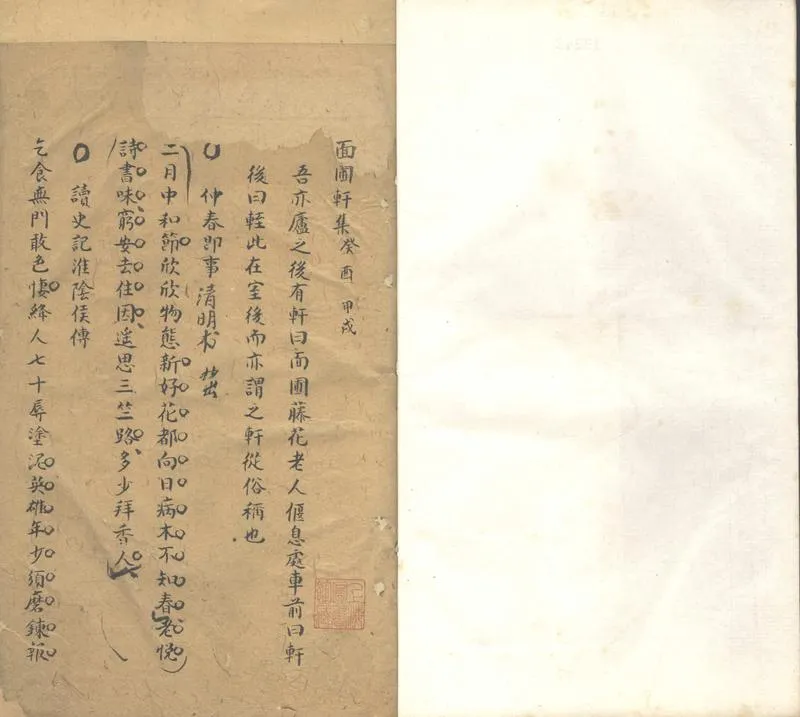 面圃軒集癸酉 甲戌
吾亦廬之後有軒曰面圃藤花老人偃息處車前曰軒
後曰輊此在室後而亦謂之軒從俗稱也
仲春即事清明书
二月中和節欣欣物態新好花都向日病木不知春老悅
詩書味窮安去住因遥思三竺路多少拜香人
讀史記淮陰侯傳
乞食無門敢色悽絳人七十辱塗泥英雄年少須磨鍊報